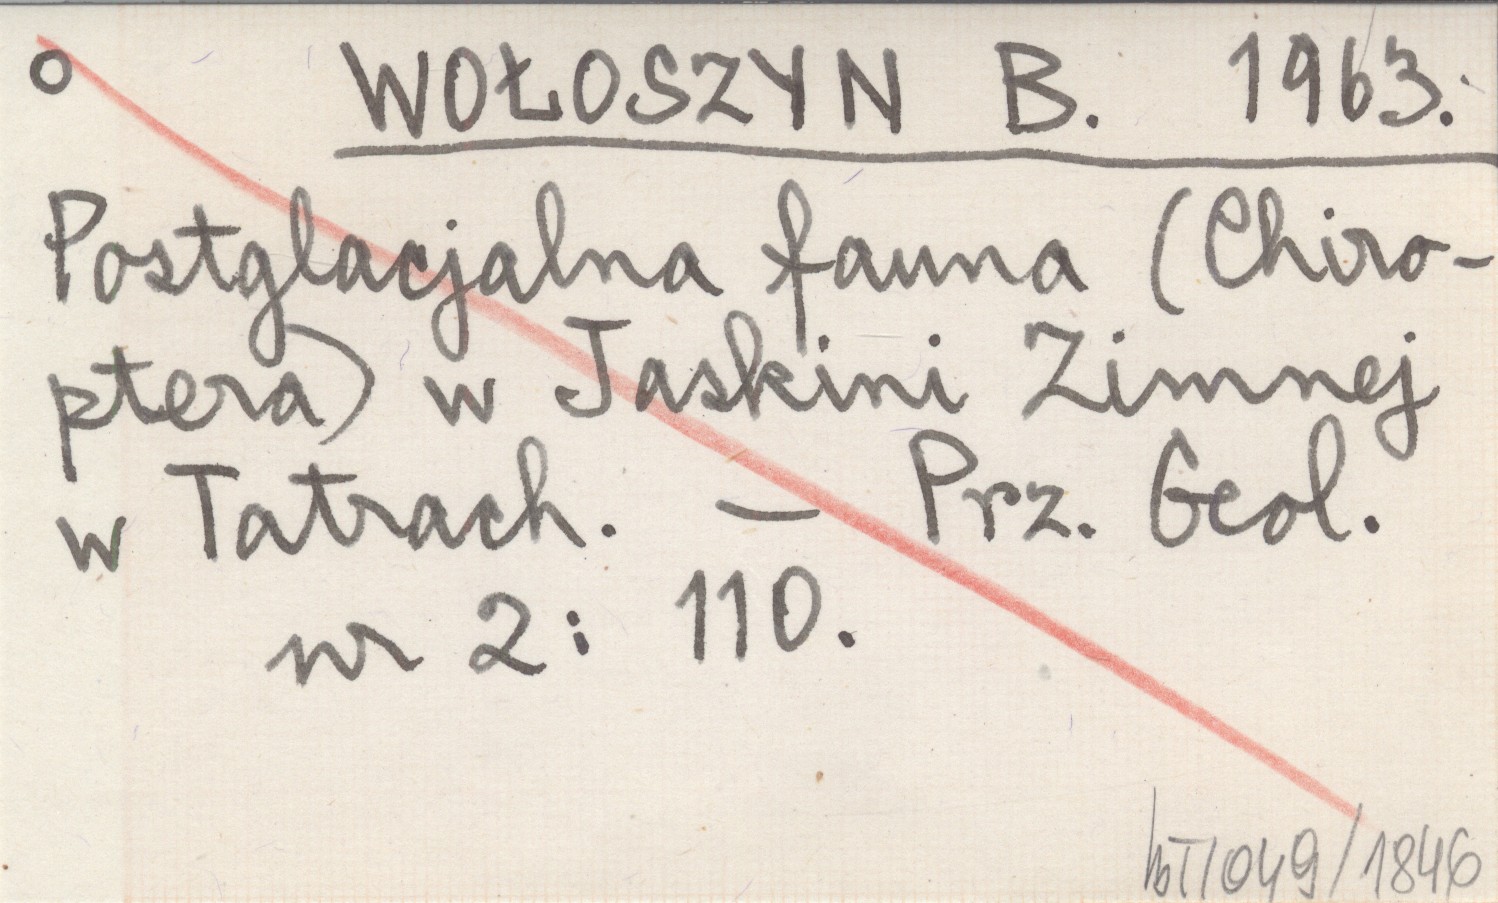 o WOŁOSZYN B. 1963.
Postglacjalna fauna (Chiro-
ptera) w Jaskini Zimnej
w Tatrach. — Prz. Geol.
nr 2: 110.
/1846